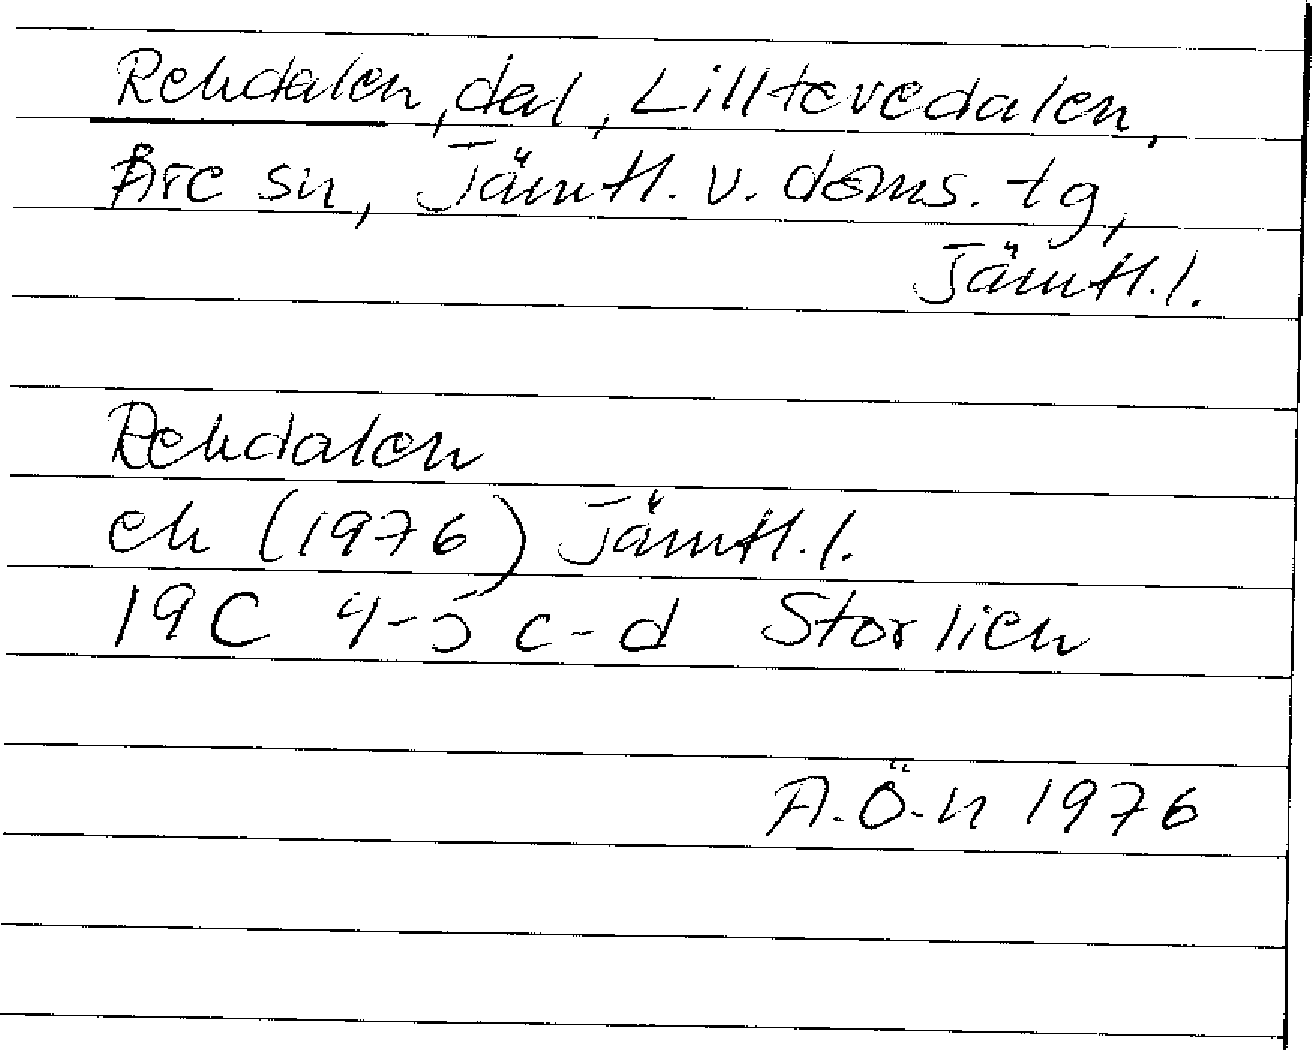 Rendalen, dal, Lilltevedalen,
Åre sn, Jämtl. v. doms. tg,
Jämtl. l.
Rendalen
ek (1976) Jämtl. l.
19C 4-5 c-d Storlien
A.Ö-n 1976